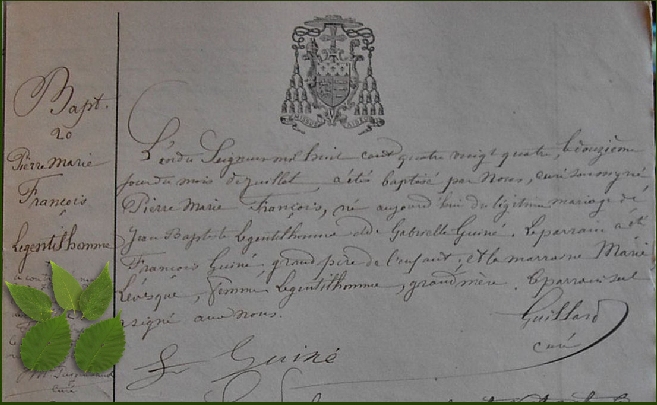 Bapt.
20
Pierre Marie
François
Legentilhomme
L'an du Seigneur mil huit cent quatre vingt quatre, le onzième
jour du mois de juillet, a été baptisé par Nous, curé soussigné,
Pierre Marie François, né aujourd'hui du légitime mariage de
Jean Baptiste Legentilhomme et de Gabrielle Guiné. Le parrain a été
François Guiné, grand père de l'enfant; et la marraine Marie
Levesque, femme Legentilhomme, grand'mère. Le parrain seul
a signé avec nous.
Guillard
curé
F Guiné
curé